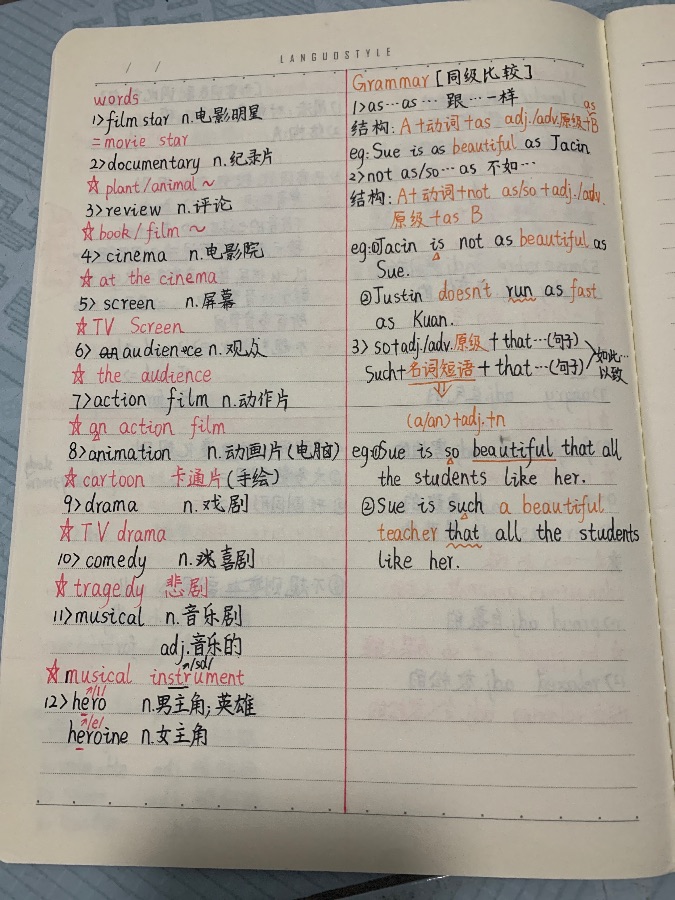 LANGUOSTYLE
/ /
words
1>film star n.电影明星
=movie star
2>documentary n.纪录片
☆plant/animal~
3>review n.评论
☆book/film~
4>cinema n.电影院
☆at the cinema
5>screen n.屏幕
☆TV Screen
6>audience n.观众
☆the audience
7>action film n.动作片
☆an action film
8>animation n.动画片(电脑)
☆cartoon 卡通片(手绘)
9>drama n.戏剧
☆TV drama
10>comedy n.喜剧
☆tragedy 悲剧
11>musical n.音乐剧
adj.音乐的
☆musical instrument
12>hero n.男主角;英雄
/e/
heroine n.女主角
Grammar [同级比较]
1>as…as… 跟…一样
as
结构:A+动词+as adj./adv.原级+B
eg:Sue is as beautiful as Jacin
2>not as/so…as 不如…
结构:A+动词+not as/so+adj./adv.
原级+as B
eg:①Jacin is not as beautiful as
Sue.
②Justin doesn't run as fast
as Kuan.
3>so+adj./adv.原级+that…(句子)
如此…
Such+名词短语+that…(句子)
以致
(a/an)+adj.+n
eg:①Sue is so beautiful that all
the students like her.
②Sue is such a beautiful
teacher that all the students
like her.